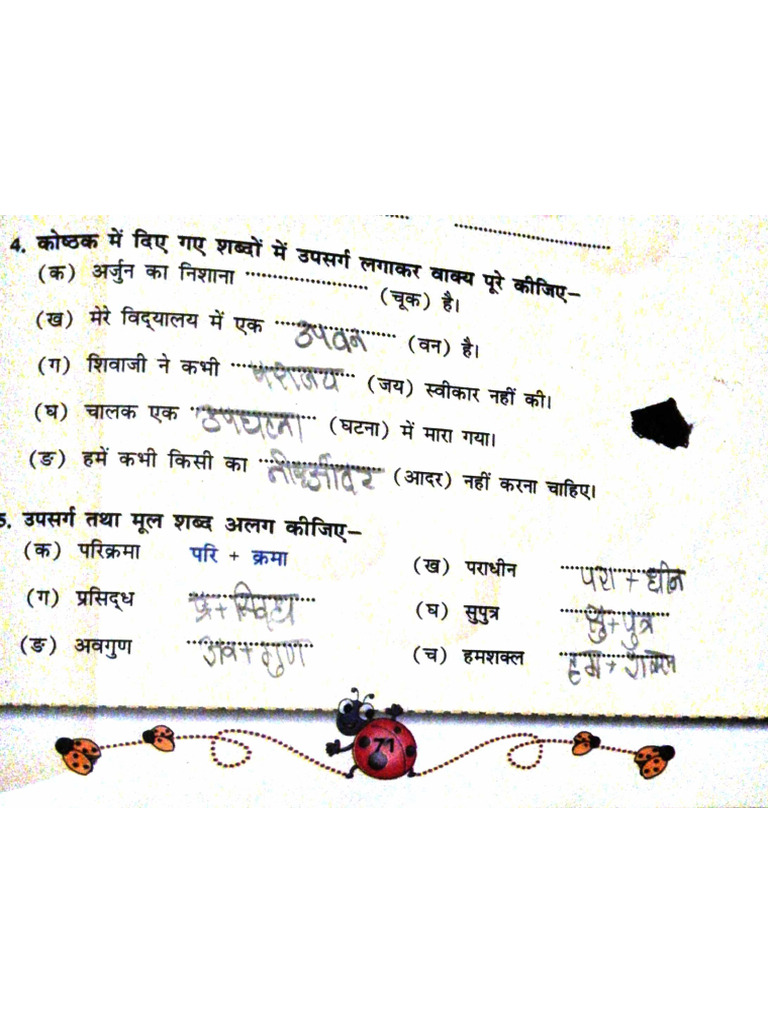 4. कोष्ठक में दिए गए शब्दों में उपसर्ग लगाकर वाक्य पूरे कीजिए–
(क) अर्जुन का निशाना ........................ (चूक) है।
(ख) मेरे विद्यालय में एक उपवन (वन) है।
(ग) शिवाजी ने कभी पराजय (जय) स्वीकार नहीं की।
(घ) चालक एक उपघटना (घटना) में मारा गया।
(ङ) हमें कभी किसी का (आदर) नहीं करना चाहिए।
5. उपसर्ग तथा मूल शब्द अलग कीजिए–
(क) परिक्रमा परि + क्रमा (ख) पराधीन परा + धीन
(ग) प्रसिद्ध प्र + (घ) सुपुत्र सु + पुत्र
(ङ) अवगुण अव + गुण (च) हमशक्ल हम + शक्ल
71